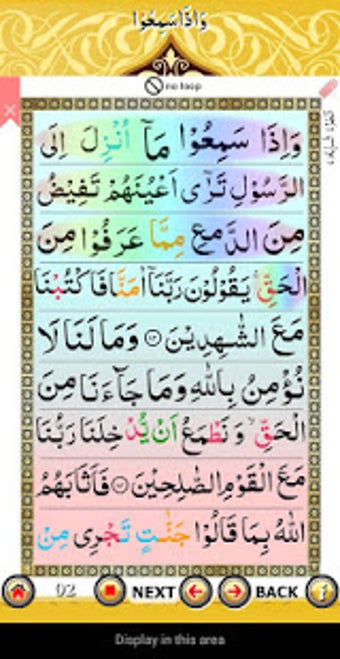 وَاِذَا سَمِعُوْا
no loop
وَاِذَا سَمِعُوْا مَاۤ اُنْزِلَ اِلَى
الرَّسُوْلِ تَرٰۤى اَعْيُنَهُمْ تَفِيْضُ
مِنَ الدَّمْعِ مِمَّا عَرَفُوْا مِنَ
الْحَقِّ ۚ يَقُوْلُوْنَ رَبَّنَاۤ اٰمَنَّا فَاكْتُبْنَا
مَعَ الشّٰهِدِيْنَ ۝۸۳ وَمَا لَنَا لَا
نُؤْمِنُ بِاللّٰهِ وَمَا جَآءَنَا مِنَ
الْحَقِّ ۙ وَنَطْمَعُ اَنْ يُّدْخِلَنَا رَبُّنَا
مَعَ الْقَوْمِ الصّٰلِحِيْنَ ۝ فَاَثَابَهُمُ
اللّٰهُ بِمَا قَالُوْا جَنّٰتٍ تَجْرِى مِنْ
02 NEXT BACK i
Display in this area